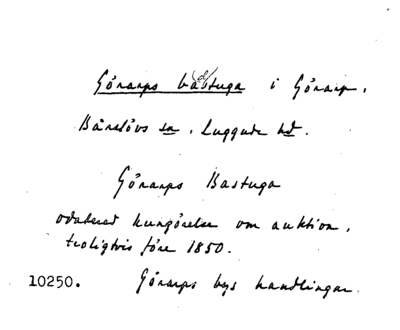 Görarps badstuga i Görarp,
Bårslövs sn, Luggude hd.
Görarps Bastuga
odaterad kungörelse om auktion,
troligtvis före 1850.
10250. Görarps bys handlingar.